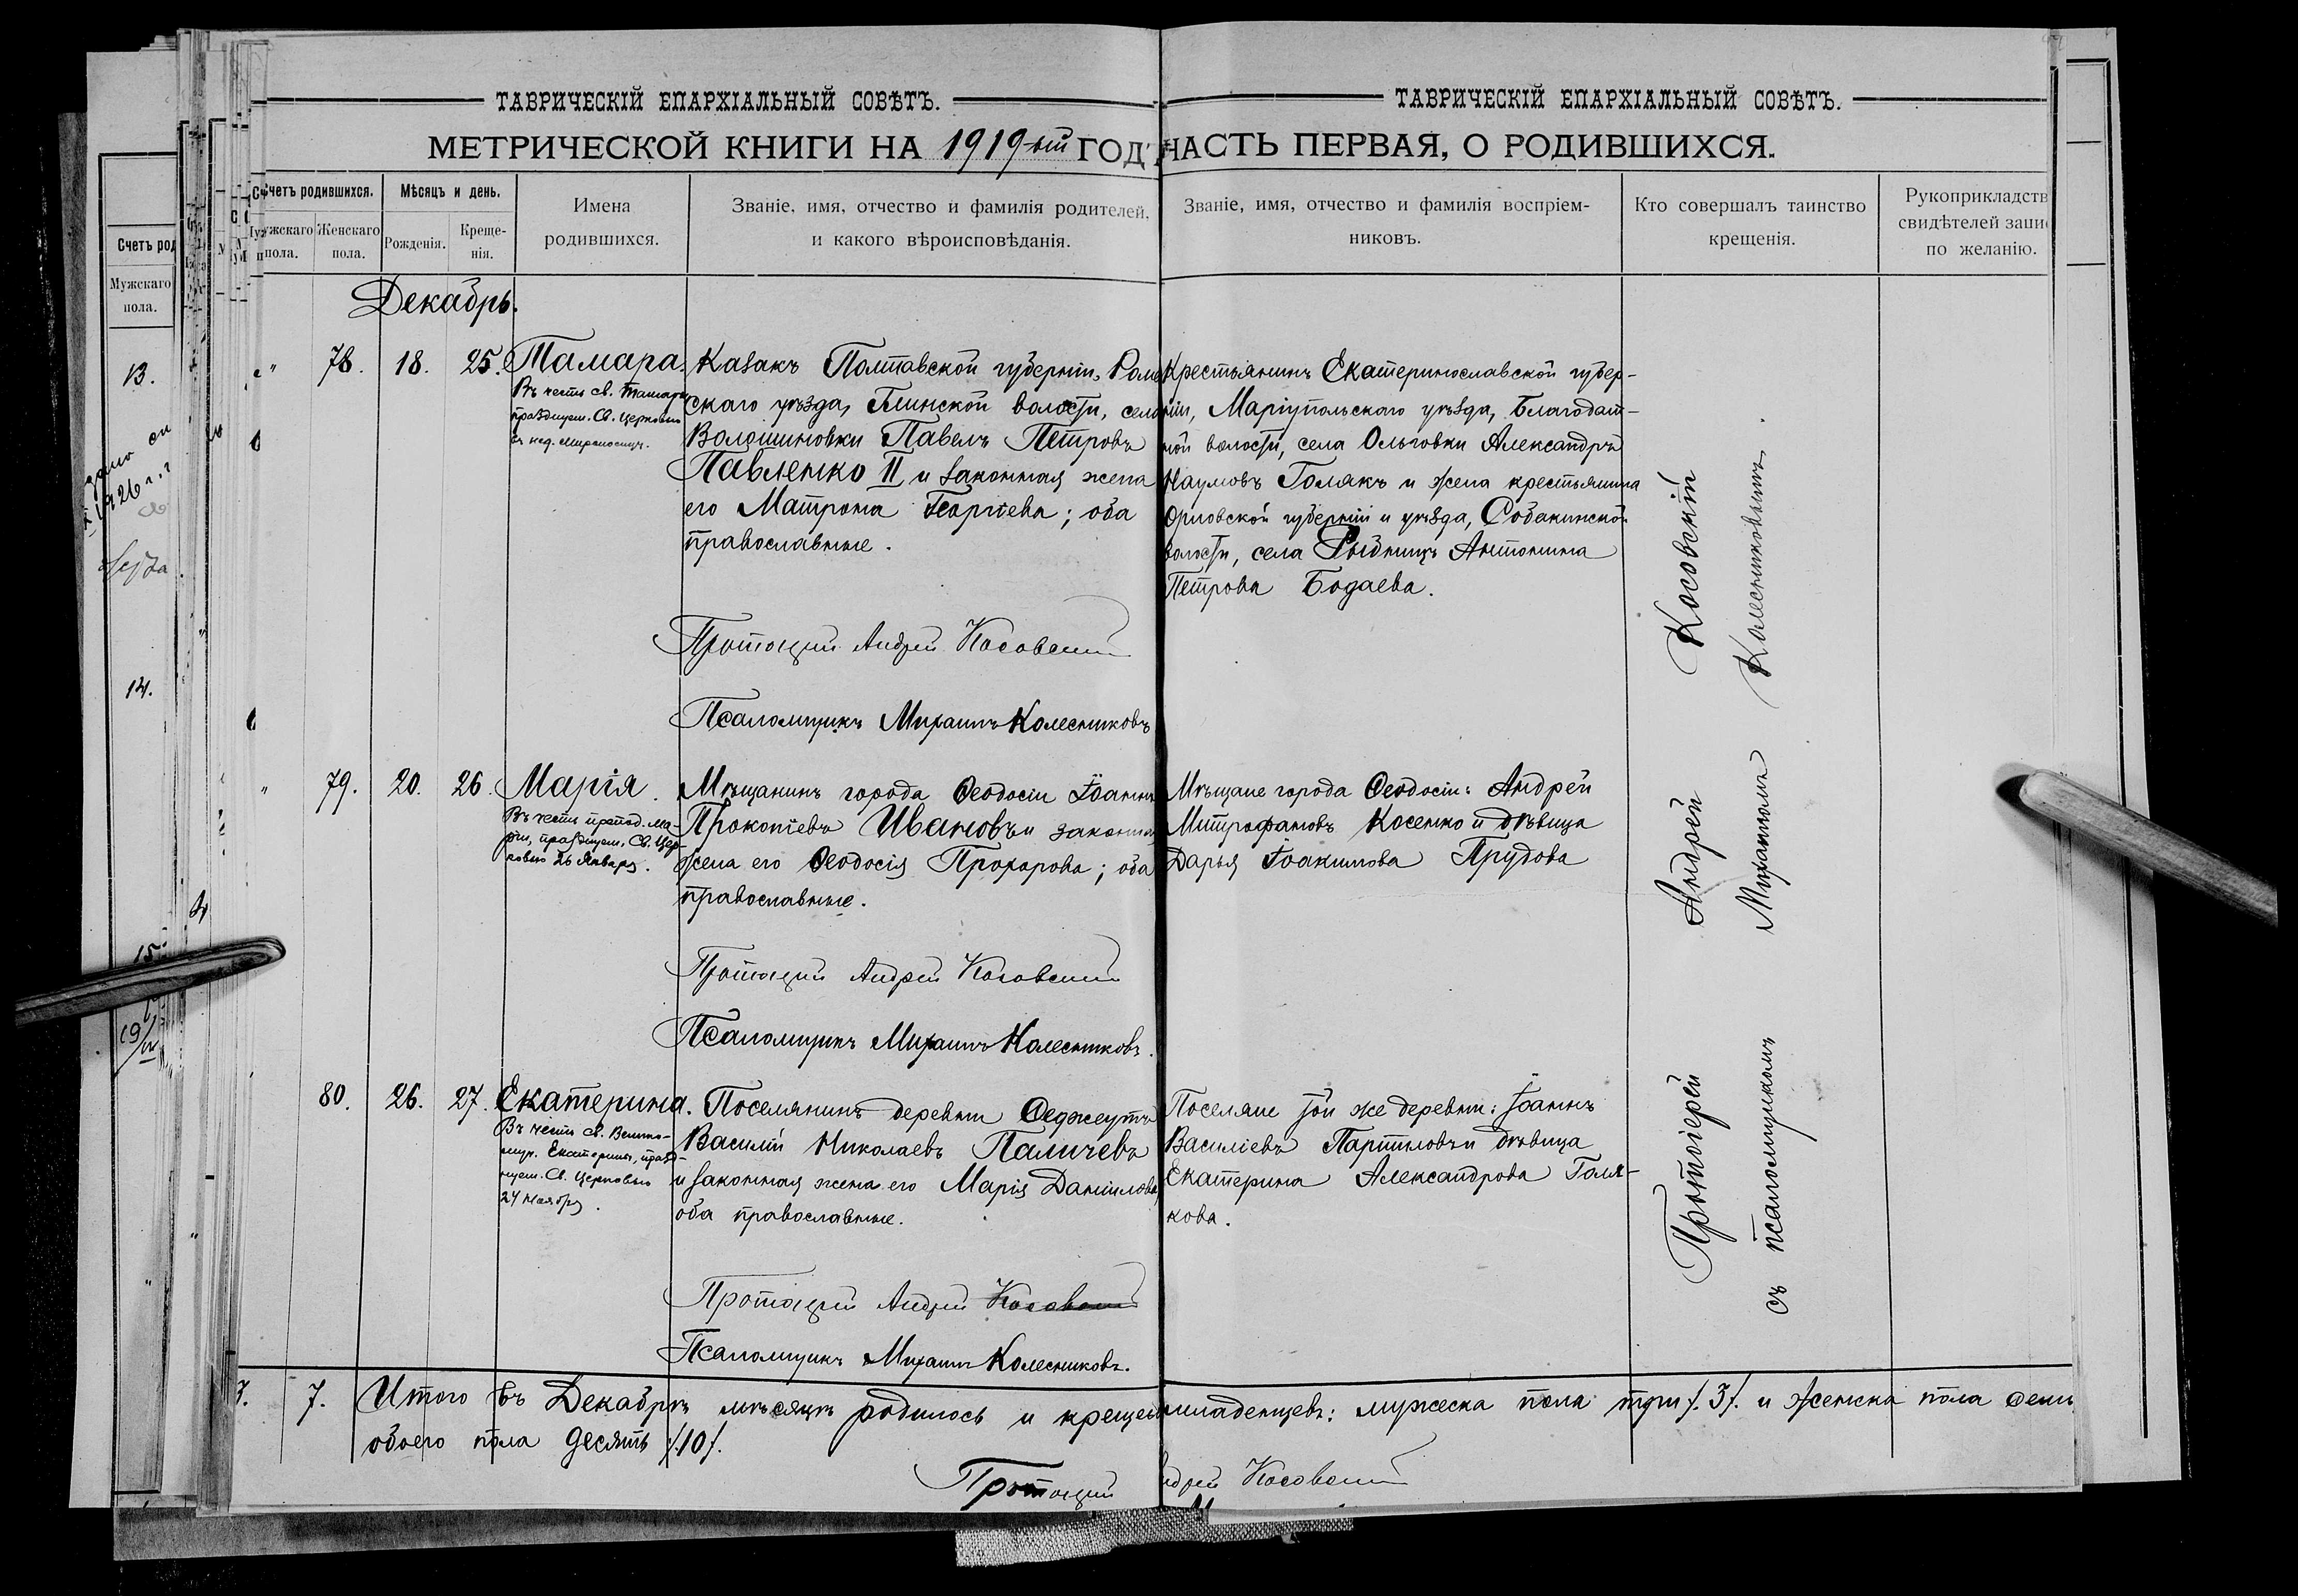 ТАВРИЧЕСКІЙ ЕПАРХІАЛЬНЫЙ СОВѢТЪ.
МЕТРИЧЕСКОЙ КНИГИ НА 1919-ый ГОДЪ
Счетъ родившихся.
Мужскаго пола.
Женскаго пола.
Мѣсяцъ и день.
Рожденія.
Креще-
нія.
Имена
родившихся.
Званіе, имя, отчество и фамилія родителей,
и какого вѣроисповѣданія.
Декабрь.
78. 18. 25. Тамара.
Въ честь св. Тамары
празднуем. Св. Церковью
въ нед. Мироносицъ.
Казакъ Полтавской губерніи, Ромен
скаго уѣзда, Глинской волости, села
Волошиновки Павелъ Петровъ
Павленко II и законная жена
его Матрона Георгіева; оба
православные.
Протоіерей Андрей Косовскій
Псаломщикъ Михаилъ Колесниковъ
79. 20. 26. Марія.
Въ честь препод. Ма-
ріи, празднуем. Св. Цер-
ковью 26 Января.
Мѣщанинъ города Ѳеодосіи Іоаннъ
Прокопіевъ Ивановъ и законная
жена его Ѳеодосія Прохорова; оба
православные.
Протоіерей Андрей Косовскій
Псаломщикъ Михаилъ Колесниковъ.
80. 26. 27. Екатерина.
Въ честь св. Велико-
муч. Екатерины, празд-
нуем. Св. Церковью
24 Ноября.
Поселянинъ деревни Седжеутъ
Василій Николаевъ Паличевъ
и законная жена его Марія Даніилова,
оба православные.
Протоіерей Андрей Косовскій
Псаломщикъ Михаилъ Колесниковъ.
3. 7. Итого въ Декабрѣ мѣсяцѣ родилось и крещено младенцевъ: мужеска пола три /.3/. и женска пола семь
обоего пола десять /.10/.
Протоіерей Андрей Косовскій
ТАВРИЧЕСКІЙ ЕПАРХІАЛЬНЫЙ СОВѢТЪ.
ЧАСТЬ ПЕРВАЯ, О РОДИВШИХСЯ.
Званіе, имя, отчество и фамилія воспріем-
никовъ.
Кто совершалъ таинство
крещенія.
Рукоприкладств
свидѣтелей запис
по желанію.
Крестьянинъ Екатеринославской губер-
ніи, Маріупольскаго уѣзда, Благодат-
ной волости, села Ольговки Александръ
Наумовъ Голякъ и жена крестьянина
Орловской губерніи и уѣзда, Собакинской
волости, села Рыбницъ Антонина
Петрова Бодаева.
Мѣщане города Ѳеодосіи: Андрей
Митрофановъ Косенко и дѣвица
Дарья Іоакимова Прудова
Поселяне той же деревни: Іоаннъ
Василіевъ Партиловъ и дѣвица
Екатерина Александрова Голя-
кова.
Протоіерей Андрей Косовскій
съ псаломщикомъ Михаиломъ Колесниковымъ.
Счетъ род
Мужскаго
пола.
13.
1926 г.
14.
15.
19/IV